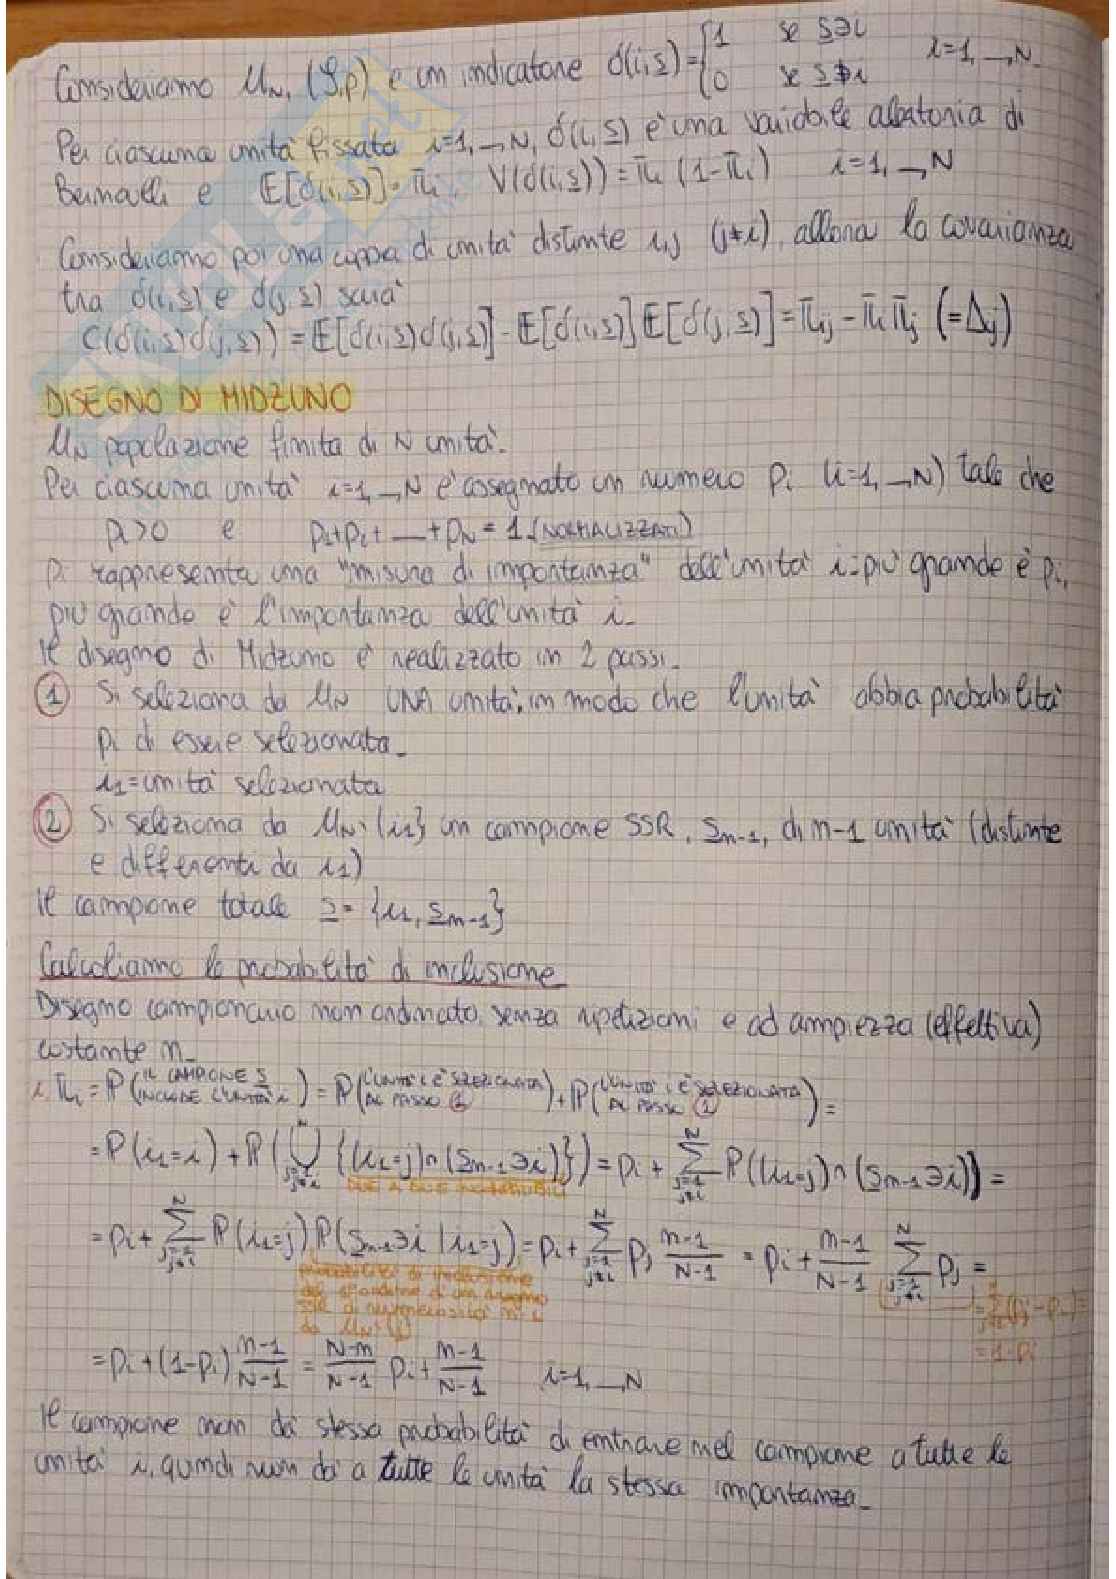 Consideriamo U_N, (S,p) e un indicatore δ(i,s) = { 1 se s∋i
0 se s∌i i=1, —, N.
Per ciascuna unità fissata i=1, —, N, δ(i,s) è una variabile aleatoria di
Bernoulli e E[δ(i,s)] = π_i V(δ(i,s)) = π_i (1-π_i) i=1, —, N
Consideriamo poi una coppia di unità distinte i,j (j≠i), allora la covarianza
tra δ(i,s) e δ(j,s) sarà
C(δ(i,s)δ(j,s)) = E[δ(i,s)δ(j,s)] - E[δ(i,s)]E[δ(j,s)] = π_ij - π_iπ_j (=Δ_ij)
DISEGNO DI MIDZUNO
U_N popolazione finita di N unità.
Per ciascuna unità i=1, —, N è assegnato un numero p_i (i=1, —, N) tale che
p_i>0 e p_1+p_2+ — +p_N = 1 (NORMALIZZATI)
p_i rappresenta una "misura di importanza" dell'unità i: più grande è p_i,
più grande è l'importanza dell'unità i.
Il disegno di Midzuno è realizzato in 2 passi.
① Si seleziona da U_N UNA unità, in modo che l'unità abbia probabilità
p_i di essere selezionata.
i_1 = unità selezionata
② Si seleziona da U_N \ {i_1} un campione SSR, s_n-1, di n-1 unità (distinte
e differenti da i_1)
Il campione totale s = {i_1, s_n-1}
Calcoliamo le probabilità di inclusione
Disegno campionario non ordinato, senza ripetizioni e ad ampiezza (effettiva)
costante n.
π_i = P(IL CAMPIONE s INCLUDE L'UNITÀ i) = P(L'UNITÀ i È SELEZIONATA AL PASSO ①) + P(L'UNITÀ i È SELEZIONATA AL PASSO ②) =
= P(i_1=i) + P(∪_{j=1, j≠i}^N {(i_1=j)∩(s_n-1∋i)}) = p_i + Σ_{j=1, j≠i}^N P((i_1=j)∩(s_n-1∋i)) =
DUE A DUE INCOMPATIBILI
= p_i + Σ_{j=1, j≠i}^N P(i_1=j) P(s_n-1∋i | i_1=j) = p_i + Σ_{j=1, j≠i}^N p_j (n-1)/(N-1) = p_i + (n-1)/(N-1) Σ_{j=1, j≠i}^N p_j =
probabilità di inclusione
del primo ordine di un disegno
SSR di numerosità n-1
da U_N \ {j}
= 1-p_i
= p_i + (1-p_i) (n-1)/(N-1) = (N-n)/(N-1) p_i + (n-1)/(N-1) i=1, —, N
Il campione non dà stessa probabilità di entrare nel campione a tutte le
unità i, quindi non dà a tutte le unità la stessa importanza.